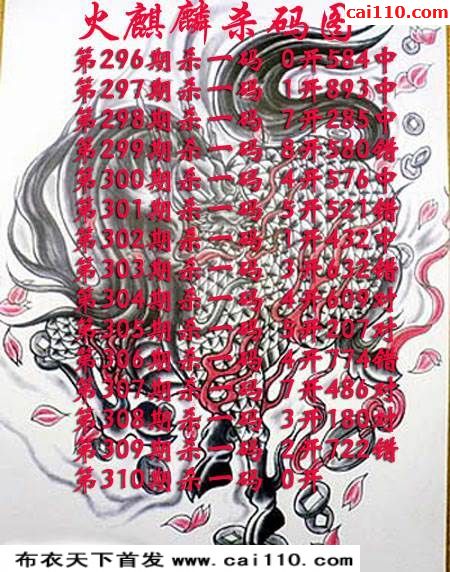 cai110.com
火麒麟杀码图
第296期杀一码 0开584中
第297期杀一码 1开893中
第298期杀一码 7开285中
第299期杀一码 8开580错
第300期杀一码 4开576中
第301期杀一码 5开521错
第302期杀一码 1开432中
第303期杀一码 3开632错
第304期杀一码 4开609对
第305期杀一码 5开207对
第306期杀一码 4开774错
第307期杀一码 7开486对
第308期杀一码 3开180对
第309期杀一码 2开722错
第310期杀一码 0开
布衣天下首发 www.cai110.com